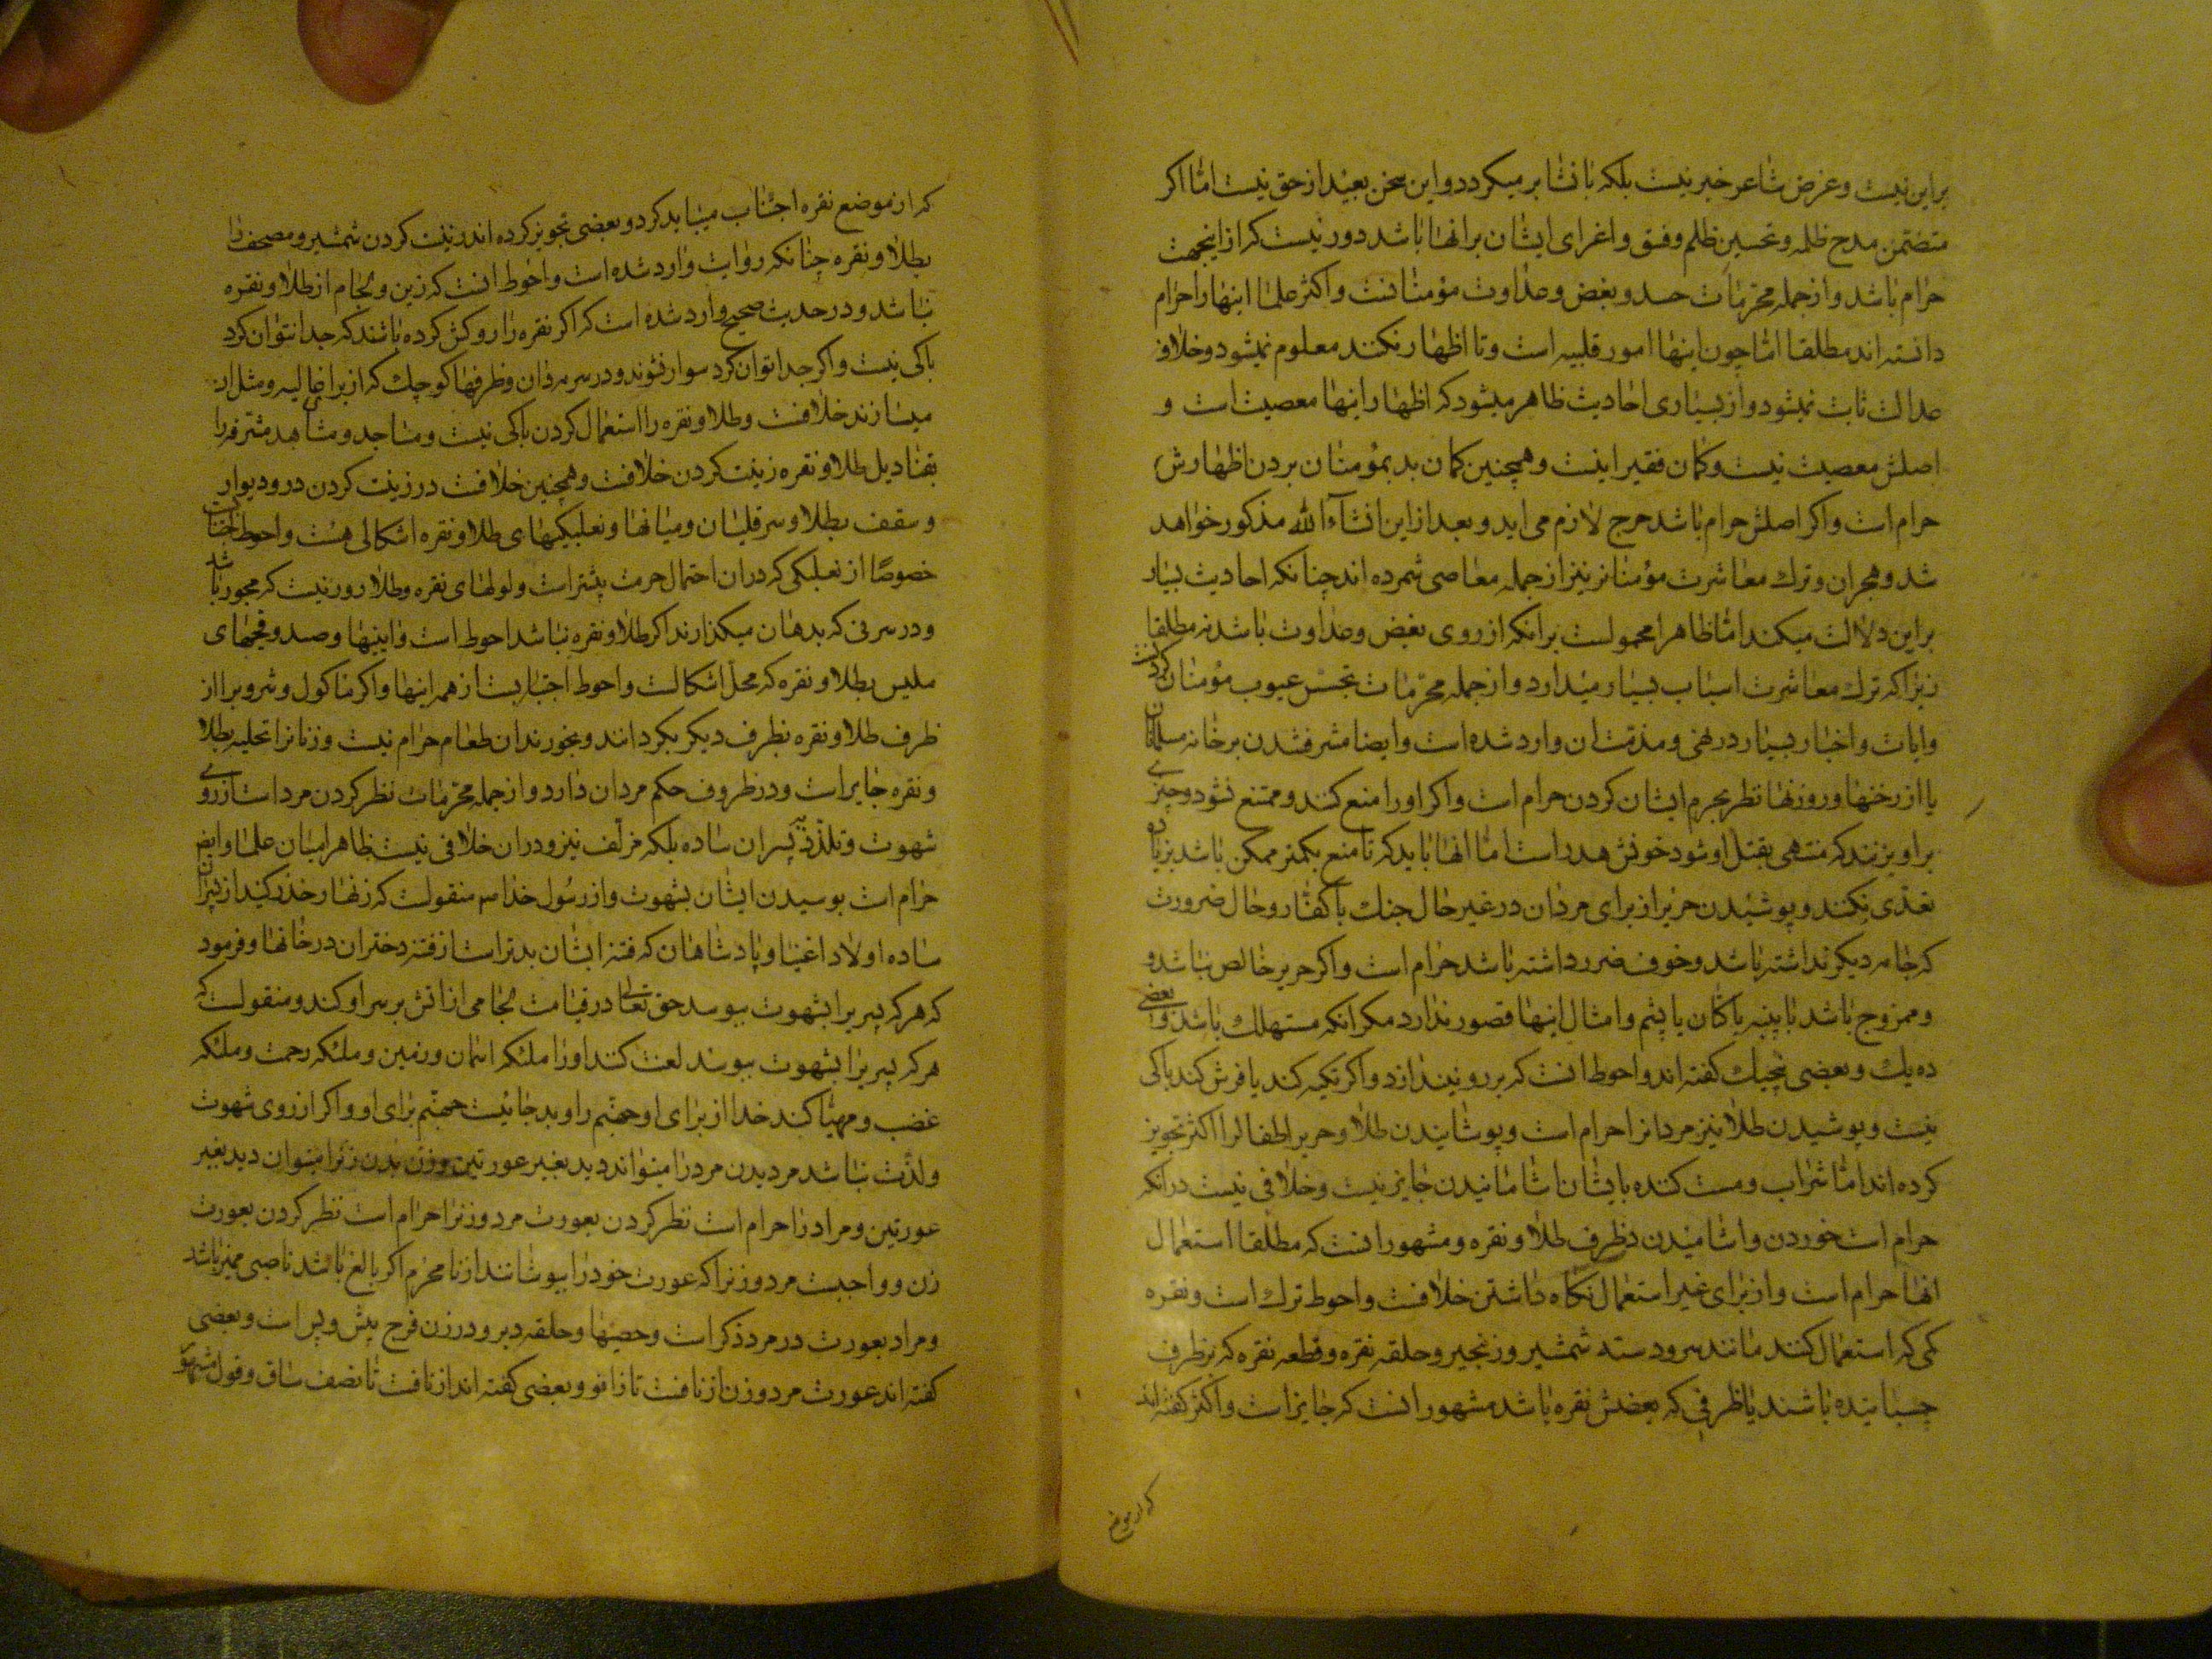 بر این نیست و غرض شاعر خبر نیست بلکه بانشا بر میکردد و این سخن بعید از حق نیست امّا اکر
متضمن مدح ظلمه و تحسین ظلم و فسق و اغرای ایشان بر انها باشد دور نیست که از اینجهت
حرام باشد و از جمله محرّمات حسد و بغض و عداوت مؤمنانست و اکثر علما اینها را حرام
دانسته اند مطلقا امّا چون اینها امور قلبیه است و تا اظهار نکنند معلوم نمیشود و خلاف
عدالت ثابت نمیشود و از بسیاری احادیث ظاهر میشود که اظهار اینها معصیت است و
اصلش معصیت نیست و کمان فقیر اینست و همچنین کمان بد بمؤمنان بردن اظهارش
حرام است و اکر اصلش حرام باشد حرج لازم می اید و بعد از این انشآء الله مذکور خواهد
شد و هجران و ترك معاشرت مؤمنانرا نیز از جمله معاصی شمرده اند چنانکه احادیث بسیار
بر این دلالت میکند امّا ظاهرا محمولست بر انکه از روی بغض و عداوت باشد نه مطلقا
زیرا که ترك معاشرت اسباب بسیار میدارد و از جمله محرّمات تجسّس عیوب مؤمنان کردنست
و ایات و اخبار بسیار در نهی و مذمّت ان وارد شده است و ایضا مشرف شدن بر خانه مسلمانان
یا از رخنها و روزنها نظر بحرم ایشان کردن حرام است و اکر او را منع کنند و ممتنع نشود و چیزے
بر او بزنند که منتهی بقتل او شود خونش هدر است امّا انها باید که تا منع بکمتر ممکن باشد بزیاده
تعدّی نکنند و پوشیدن حریر از برای مردان در غیر حال جنك با کفّار و حال ضرورت
که جامه دیکر نداشته باشد و خوف ضرر داشته باشد حرام است و اکر حریر خالص نباشد و
و ممزوج باشد با پنبه یا کتان یا پشم و امثال اینها قصور ندارد مکر انکه مستهلك باشد و بعضی
ده یك و بعضی پنجیك کفته اند و احوط انست که بر رو نیندازد و اکر تکیه کند یا فرش کند باکی
نیست و پوشیدن طلا نیز مردانرا حرام است و پوشانیدن طلا و حریر اطفال را اکثر تجویز
کرده اند امّا شراب و مست کننده بایشان اشامانیدن جایز نیست و خلافی نیست در انکه
حرام است خوردن و اشامیدن در ظرف طلا و نقره و مشهور انست که مطلقا استعمال
انها حرام است و از برای غیر استعمال نکاه داشتن خلافست و احوط ترك است و نقره
کمی که استعمال کنند مانند سر و دسته شمشیر و زنجیر و حلقه نقره و قطعه نقره که بر ظرف
چسبانیده باشند یا ظرفی که بعضش نقره باشد مشهور انست که جایز است و اکثر کفته اند
که از موضع
که از موضع نقره اجتناب میباید کرد و بعضی تجویز کرده اند زینت کردن شمشیر و مصحف را
بطلا و نقره چنانکه روایت وارد شده است و احوط انست که زین و لجام از طلا و نقره
نباشد و در حدیث صحیح وارد شده است که اکر نقره را روکش کرده باشند که جدا نتوان کرد
باکی نیست و اکر جدا توان کرد سوار نشوند و در سرمه دان و ظرفها کوچك که از برای غالیه و مثل ان
میسازند خلافست و طلا و نقره را استعمال کردن باکی نیست و مساجد و مشاهد مشرفه را
بقنادیل طلا و نقره زینت کردن خلافست و همچنین خلافست در زینت کردن در و دیوار
و سقف بطلا و سر قلیان و میانها و نعلبکیهای طلا و نقره اشکالی هست و احوط اجتنابست
خصوصًا از نعلبکی که در ان احتمال حرمت بیشتر است و لولهای نقره و طلا دور نیست که مجوز باشد
و در سر نی که بدهان میکذارند اکر طلا و نقره نباشد احوط است و اینها و صندوقچهای
ملبس بطلا و نقره که محلّ اشکالست و احوط اجتنابست از همه اینها و اکر ماکول و مشروبرا از
ظرف طلا و نقره بظرف دیکر بکردانند و بخورند ان طعام حرام نیست و زنانرا تحلیه بطلا
و نقره جایز است و در ظروف حکم مردان دارد و از جمله محرّمات نظر کردن مرد است از روے
شهوت و تلذّذ به پسران ساده بلکه مزلّف نیز و در ان خلافی نیست ظاهرا میان علما و ایضا
حرام است بوسیدن ایشان بشهوت و از رسول خدا ص منقولست که زنهار حذر کنید از پسران
ساده اولاد اغنیا و پادشاهان که فتنه ایشان بدتر است از فتنه دختران در خانها و فرمود
که هر که پسریرا بشهوت ببوسد حق تعالی در قیامت لجامی از اتش بر سر او کند و منقولست که
هر که پسریرا بشهوت ببوسد لعنت کنند او را ملئکه اسمان و زمین و ملئکه رحمت و ملئکه
غضب و مهیّا کند خدا از برای او جهنّم را و بد جائیست جهنّم برای او و اکر از روی شهوت
و لذّت نباشد مرد بدن مرد را میتواند دید بغیر عورتین و زن بدن زنرا میتوان دید بغیر
عورتین و مراد را حرام است نظر کردن بعورت مرد و زنرا حرام است نظر کردن بعورت
زن و واجبست مرد و زنرا که عورت خود را بپوشانند از نامحرم اکر بالغ باشد تا صبی ممیز باشد
و مراد بعورت در مرد ذکر است و خصیتها و حلقه دبر و در زن فرج پیش و پس است و بعضی
کفته اند عورت مرد و زن از نافست تا زانو و بعضی کفته اند از نافست تا نصف ساق و قول مشهور